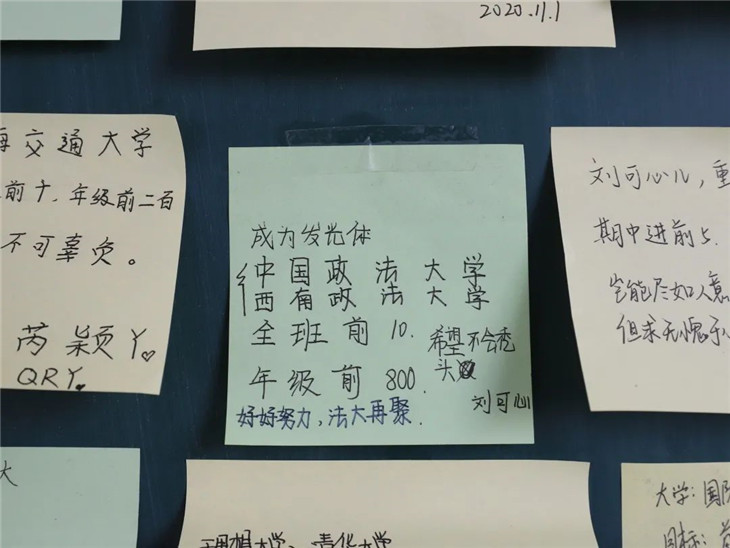 2020.11.1
交通大学
前十，年级前二百
不可辜负。
芮颖丫
QRY
成为发光体
中国政法大学
西南政法大学
全班前10.
希望不会秃
头
年级前800.
刘可心
好好努力，法大再聚.
刘可心儿，重
期中进前5.
岂能尽如人意
但求无愧于
大
理想大学：清华大学
大学：国防
目标：